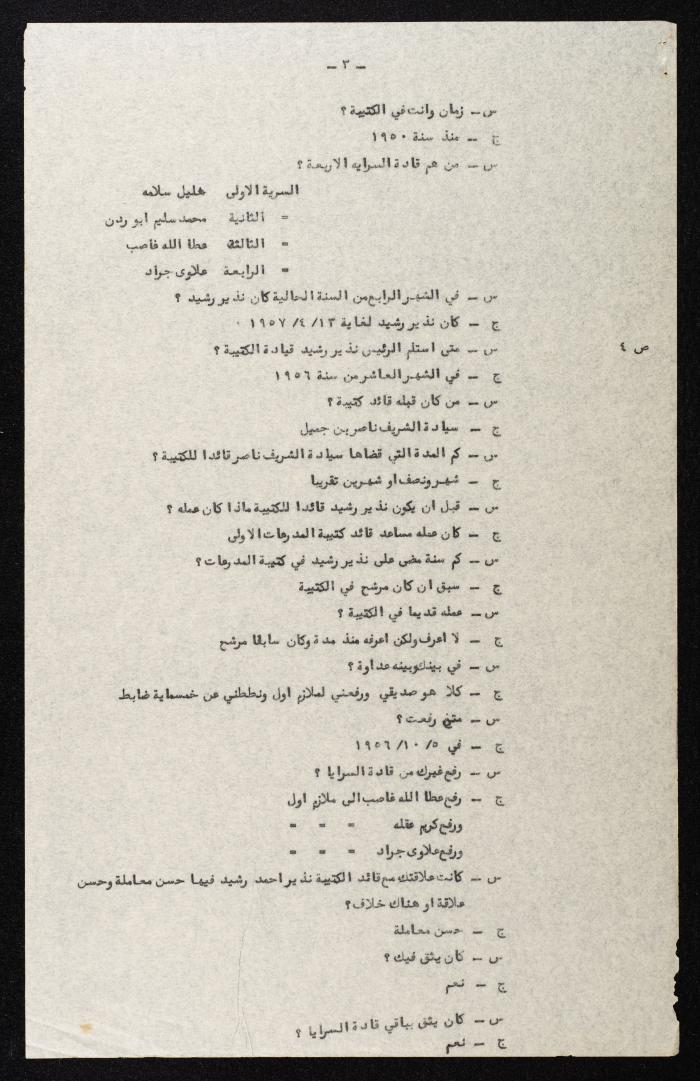 – ٣ –
س – زمان وانت في الكتيبة ؟
ج – منذ سنة ١٩٥٠
س – من هم قادة السرايه الاربعة ؟
السرية الاولى هليل سلامه
= الثانية محمد سليم ابو ردن
= الثالثة عطا الله غاصب
= الرابعة علاوى جراد
س – في الشهر الرابع من السنة الحالية كان نذير رشيد ؟
ج – كان نذير رشيد لغاية ١٣/ ٤/ ١٩٥٧ ٠
س – متى استلم الرئيس نذير رشيد قيادة الكتيبة ؟
ص ٤
ج – في الشهر العاشر من سنة ١٩٥٦
س – من كان قبله قائد كتيبة ؟
ج – سيادة الشريف ناصر بن جميل
س – كم المدة التي قضاها سيادة الشريف ناصر قائدا للكتيبة ؟
ج – شهر ونصف او شهرين تقريبا
س – قبل ان يكون نذير رشيد قائدا للكتيبة ماذا كان عمله ؟
ج – كان عمله مساعد قائد كتيبة المدرعات الاولى
س – كم سنة مضى على نذير رشيد في كتيبة المدرعات ؟
ج – سبق ان كان مرشح في الكتيبة
س – عمله قديما في الكتيبة ؟
ج – لا اعرف ولكن اعرفه منذ مدة وكان سابقا مرشح
س – في بينك وبينه عداوة ؟
ج – كلا هو صديقي ورفعني لملازم اول ونططني عن خمسماية ضابط
س – متى رفعت ؟
ج – في ٥/ ١٠/ ١٩٥٦
س – رفع غيرك من قادة السرايا ؟
ج – رفع عطا الله غاصب الى ملازم اول
ورفع كريم عقله = = =
ورفع علاوى جراد = = =
س – كانت علاقتك مع قائد الكتيبة نذير احمد رشيد فيها حسن معاملة وحسن
علاقة او هناك خلاف ؟
ج – حسن معاملة
س – كان يثق فيك ؟
ج – نعم
س – كان يثق بباقي قادة السرايا ؟
ج – نعم